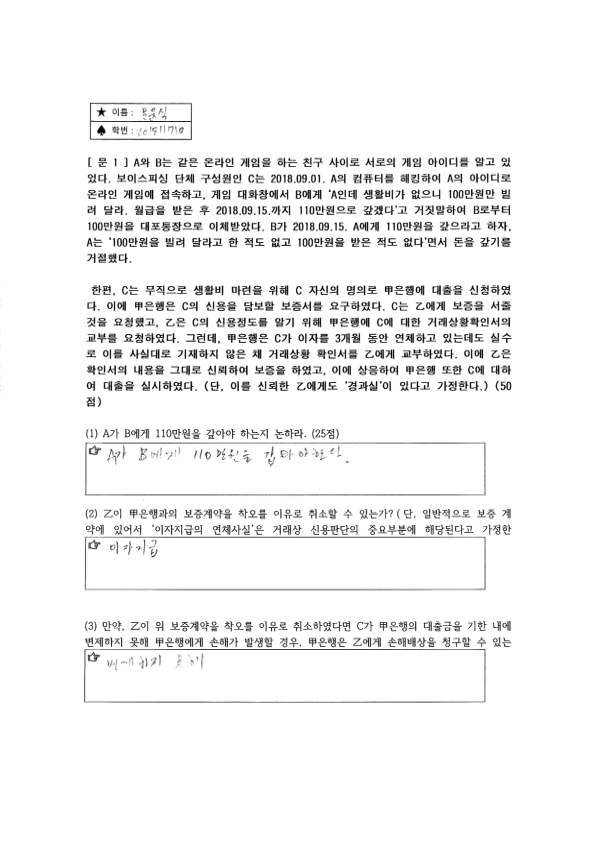 ★ 이름 : 문윤식
♠ 학번 : 201911710
[ 문 1 ] A와 B는 같은 온라인 게임을 하는 친구 사이로 서로의 게임 아이디를 알고 있
었다. 보이스피싱 단체 구성원인 C는 2018.09.01. A의 컴퓨터를 해킹하여 A의 아이디로
온라인 게임에 접속하고, 게임 대화창에서 B에게 ‘A인데 생활비가 없으니 100만원만 빌
려 달라. 월급을 받은 후 2018.09.15.까지 110만원으로 갚겠다’고 거짓말하여 B로부터
100만원을 대포통장으로 이체받았다. B가 2018.09.15. A에게 110만원을 갚으라고 하자,
A는 ‘100만원을 빌려 달라고 한 적도 없고 100만원을 받은 적도 없다’면서 돈을 갚기를
거절했다.
한편, C는 무직으로 생활비 마련을 위해 C 자신의 명의로 甲은행에 대출을 신청하였
다. 이에 甲은행은 C의 신용을 담보할 보증서를 요구하였다. C는 乙에게 보증을 서줄
것을 요청했고, 乙은 C의 신용정도를 알기 위해 甲은행에 C에 대한 거래상황확인서의
교부를 요청하였다. 그런데, 甲은행은 C가 이자를 3개월 동안 연체하고 있는데도 실수
로 이를 사실대로 기재하지 않은 채 거래상황 확인서를 乙에게 교부하였다. 이에 乙은
확인서의 내용을 그대로 신뢰하여 보증을 하였고, 이에 상응하여 甲은행 또한 C에 대하
여 대출을 실시하였다. (단, 이를 신뢰한 乙에게도 ‘경과실’이 있다고 가정한다.) (50
점)
(1) A가 B에게 110만원을 갚아야 하는지 논하라. (25점)
☞ A가 B에게 110만원을 갚아야한다.
(2) 乙이 甲은행과의 보증계약을 착오를 이유로 취소할 수 있는가? ( 단, 일반적으로 보증 계
약에 있어서 ‘이자지급의 연체사실’은 거래상 신용판단의 중요부분에 해당된다고 가정한
☞ 이자지급
(3) 만약, 乙이 위 보증계약을 착오를 이유로 취소하였다면 C가 甲은행의 대출금을 기한 내에
변제하지 못해 甲은행에게 손해가 발생할 경우, 甲은행은 乙에게 손해배상을 청구할 수 있는
☞ 변제하지 못해